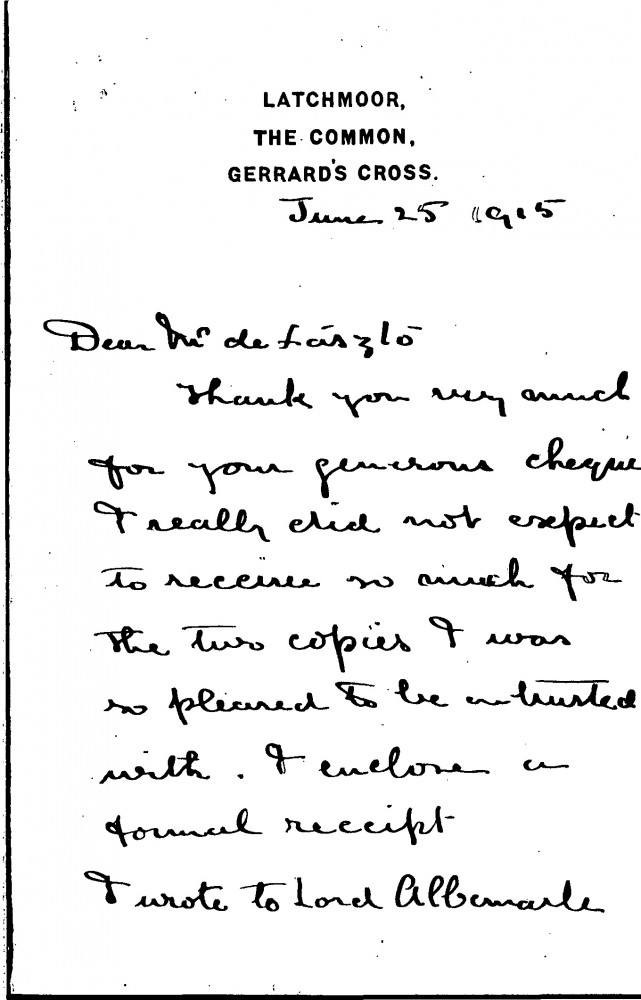 LATCHMOOR,
THE COMMON,
GERRARD'S CROSS.
June 25 1915
Dear Mr de László
Thank you very much
for your generous cheque
I really did not expect
to receive so much for
the two copies I was
so pleased to be entrusted
with. I enclose a
formal receipt
I wrote to Lord Albemarle